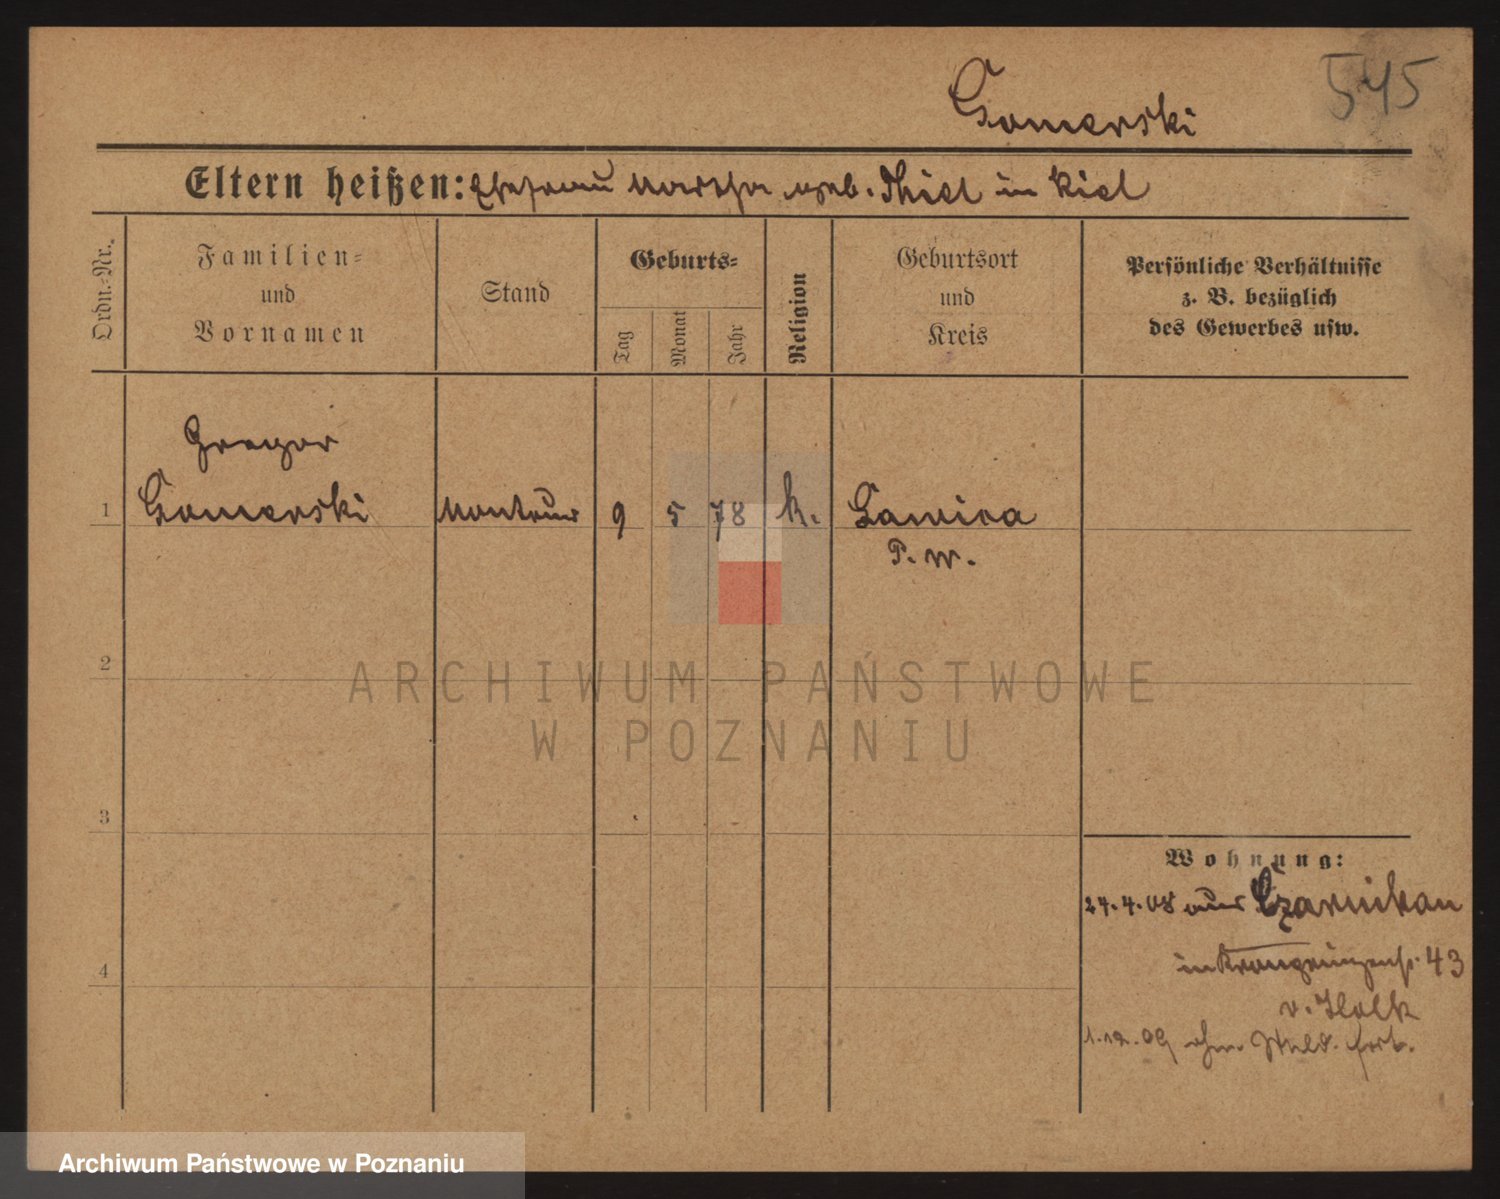 545
Gomerski
Eltern heißen: Ehefrau Martha geb. Thiel in Kiel
Ordn.-Nr.
Familien-
und
Vornamen
Stand
Geburts-
Tag
Monat
Jahr
Religion
Geburtsort
und
Kreis
Persönliche Verhältnisse
z. B. bezüglich
des Gewerbes usw.
Gregor
1 Gomerski Monteur 9 5 78 k. Lawica
P. W.
2
ARCHIWUM PAŃSTWOWE
W POZNANIU
3
Wohnung:
24.4.08 aus Czarnikau
in Kronprinzenst. 43
v.
4
1.12.09 ohne Meld. fort.
Archiwum Państwowe w Poznaniu